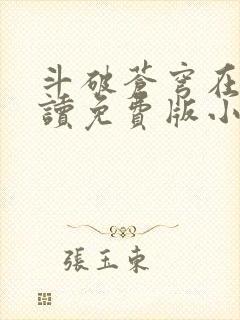 斗破蒼穹在
讀免費版小
張玉東